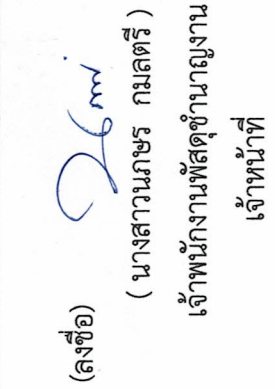 (ลงชื่อ)
( นางสาวนภษร กมลตรี )
เจ้าพนักงานพัสดุชำนาญงาน
เจ้าหน้าที่